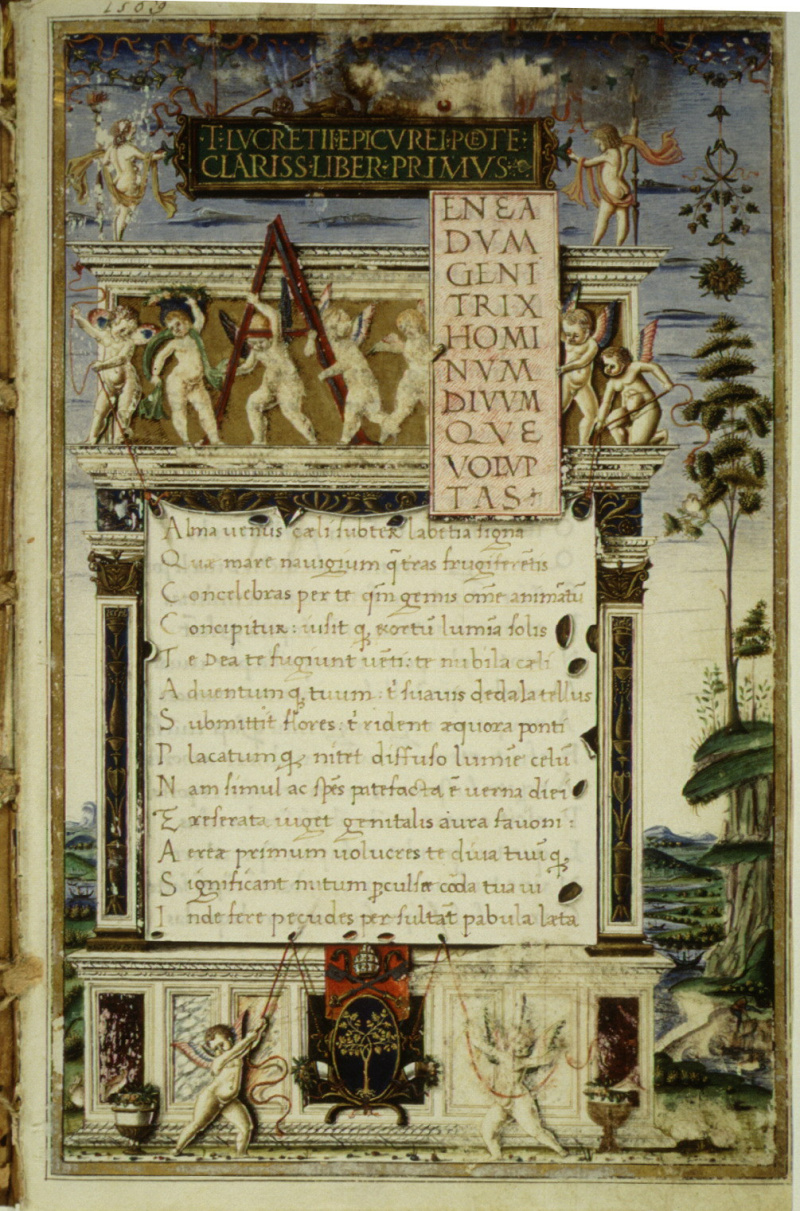 1569
T·LVCRETII·EPICVREI·POETE·
CLARISS·LIBER·PRIMVS·
A
ENEA
DVM
GENI
TRIX
HOMI
NVM
DIVVM
QVE
VOLVP
TAS
Alma uenus cæli subter labētia signa
Quæ mare nauigium q̄ tras frugiferētis
Concelebras per te qm̄ genus om̄e animātū
Concipitur: uisit q₃ exortū lumīa solis
Te Dea te fugiunt uēti: te nubila cæli
Aduentum q₃ tuum: t̄ suauis dedala tellus
Submittit flores: t̄ rident æquora ponti
Placatum q₃ nitet diffuso lumīe celū
Nam simul ac spēs patefacta ē uerna diei
Exreserata uiget genitalis aura fauoni:
Aereæ primum uolucres te diuia tuū q₃
Significant nutum ꝑculsæ corda tua ui
Inde fere pecudes per sultāt pabula læta